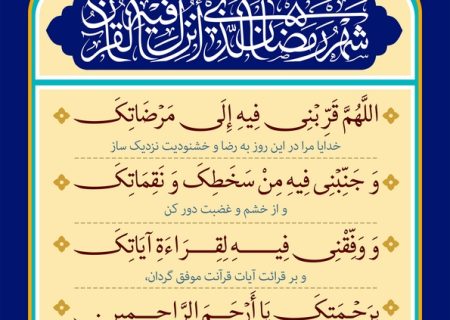 شهر رمضان الذی أنزل فیه القرآن
اللَّهُمَّ قَرِّبْنِی فِیهِ إِلَی مَرْضَاتِکَ
خدایا مرا در این روز به رضا و خشنودیت نزدیک ساز
وَ جَنِّبْنِی فِیهِ مِنْ سَخَطِکَ وَ نَقِمَاتِکَ
و از خشم و غضبت دور کن
وَ وَفِّقْنِی فِیهِ لِقِرَاءَةِ آیَاتِکَ
و بر قرائت آیات قرآنت موفق گردان،
بِرَحْمَتِکَ یَا أَرْحَمَ الرَّاحِمِینَ